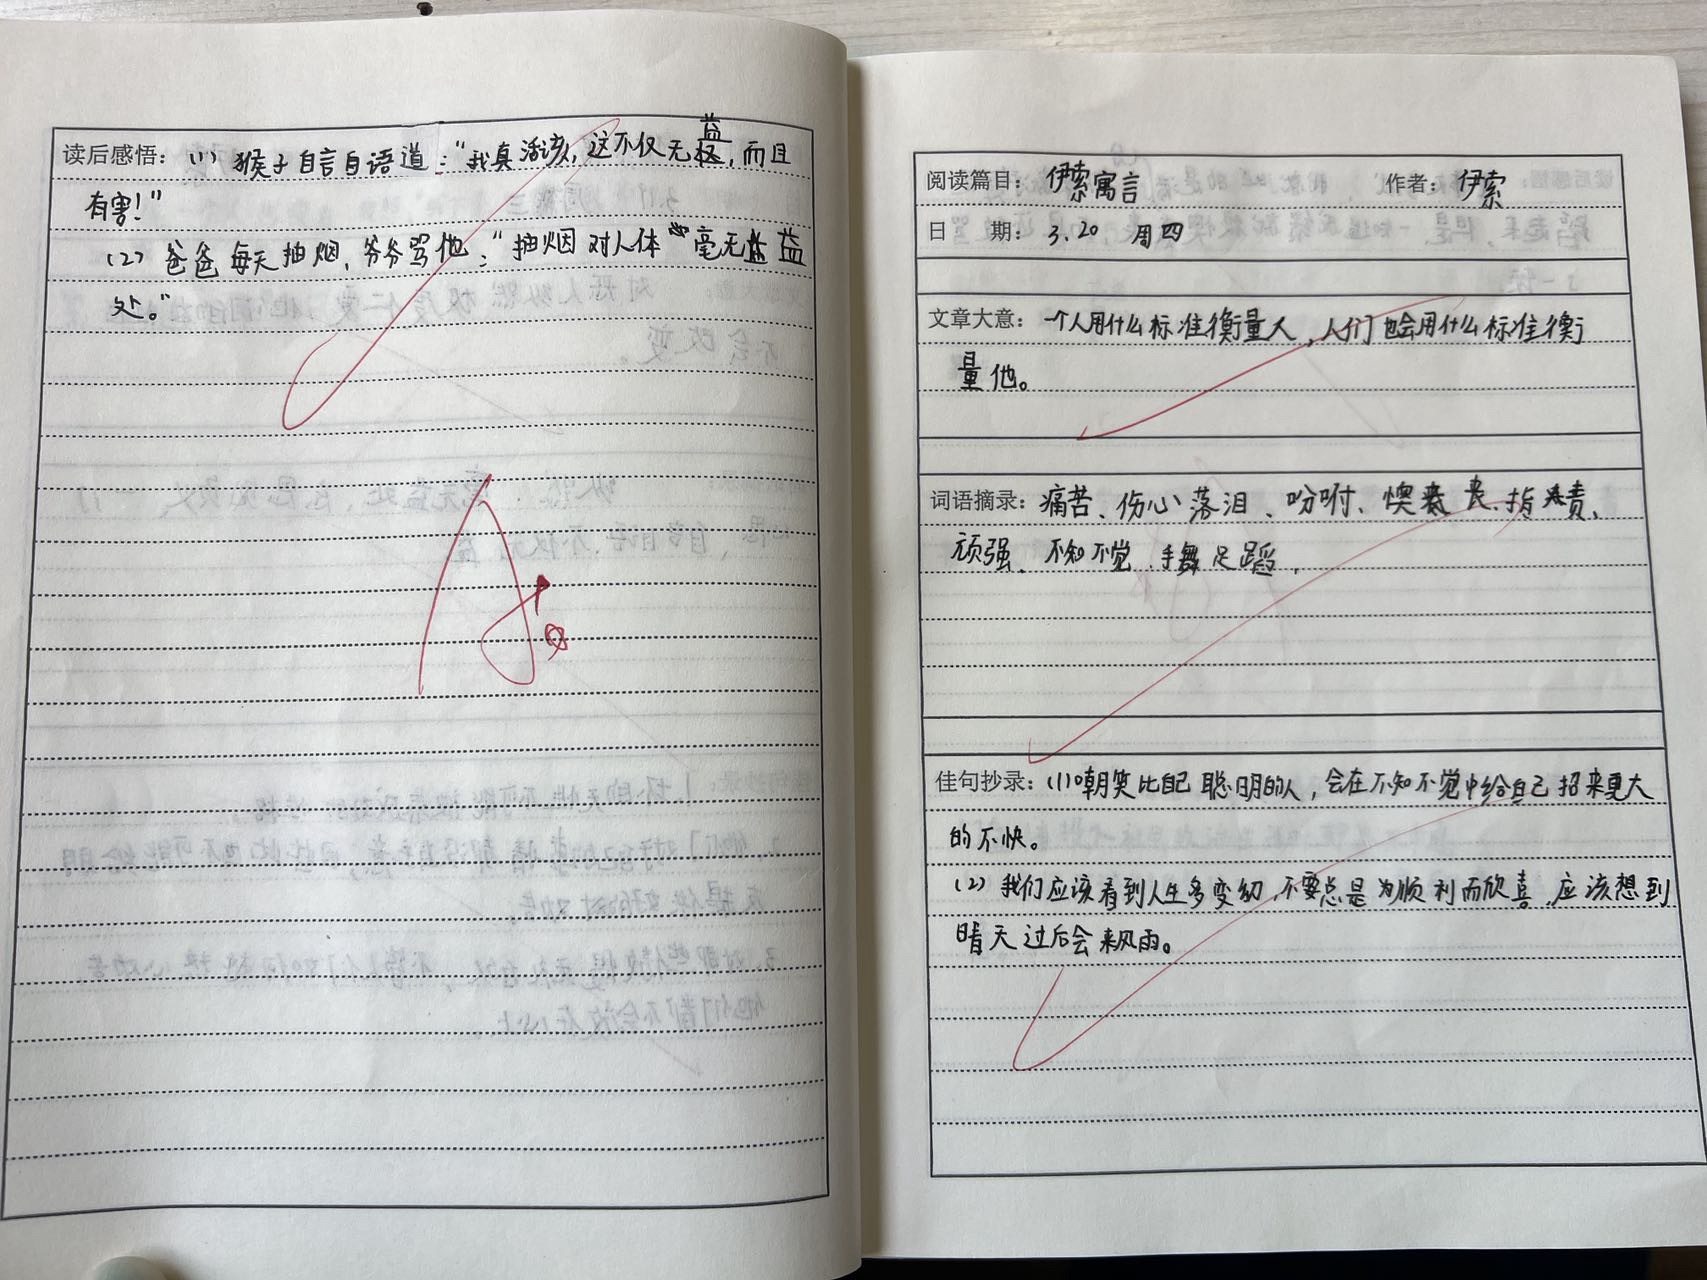 读后感悟：(1) 猴子自言自语道："我真活该，这不仅无益，而且
有害！"
(2) 爸爸每天抽烟，爷爷骂他："抽烟对人体毫无益
处。"
A
阅读篇目：伊索寓言 作者：伊索
日 期：3.20 周四
文章大意：一个人用什么标准衡量人，人们也会用什么标准衡
量他。
词语摘录：痛苦、伤心落泪、吩咐、懊丧、指责、
顽强、不知不觉、手舞足蹈、
佳句抄录：(1)嘲笑比自己聪明的人，会在不知不觉中给自己招来更大
的不快。
(2) 我们应该看到人生多变幻，不要总是为顺利而欣喜，应该想到
晴天过后会来风雨。